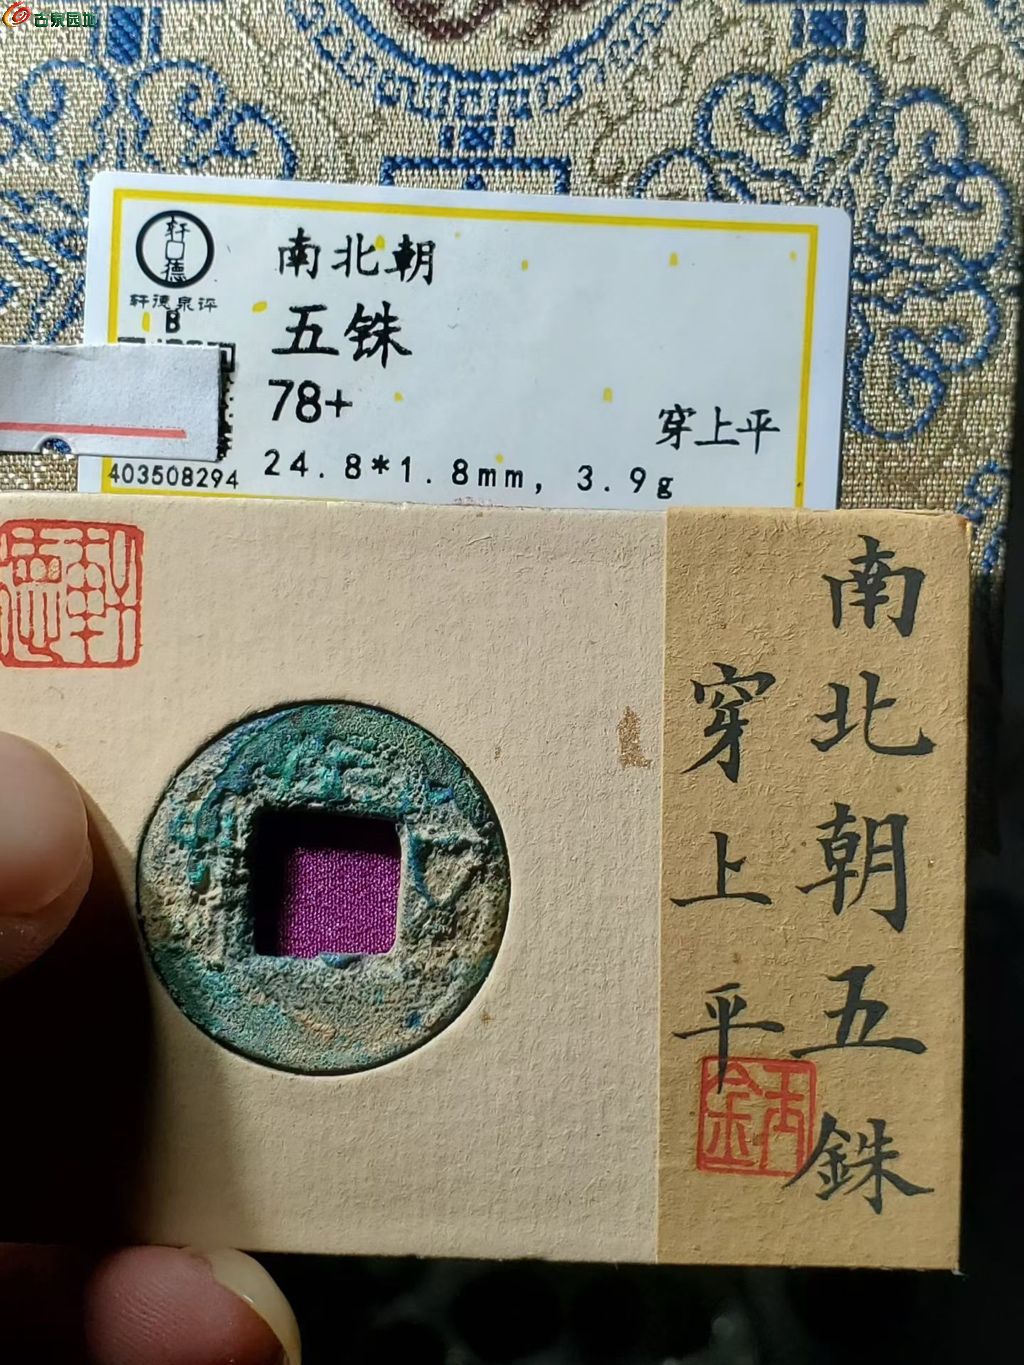 古泉园地
轩德
轩德泉评
B
南北朝
五铢
78+
穿上平
403508294
24.8*1.8mm, 3.9g
軒德
南北朝五銖
穿上平